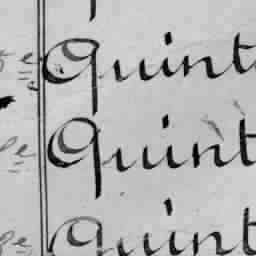 Quint
Quint
Quint